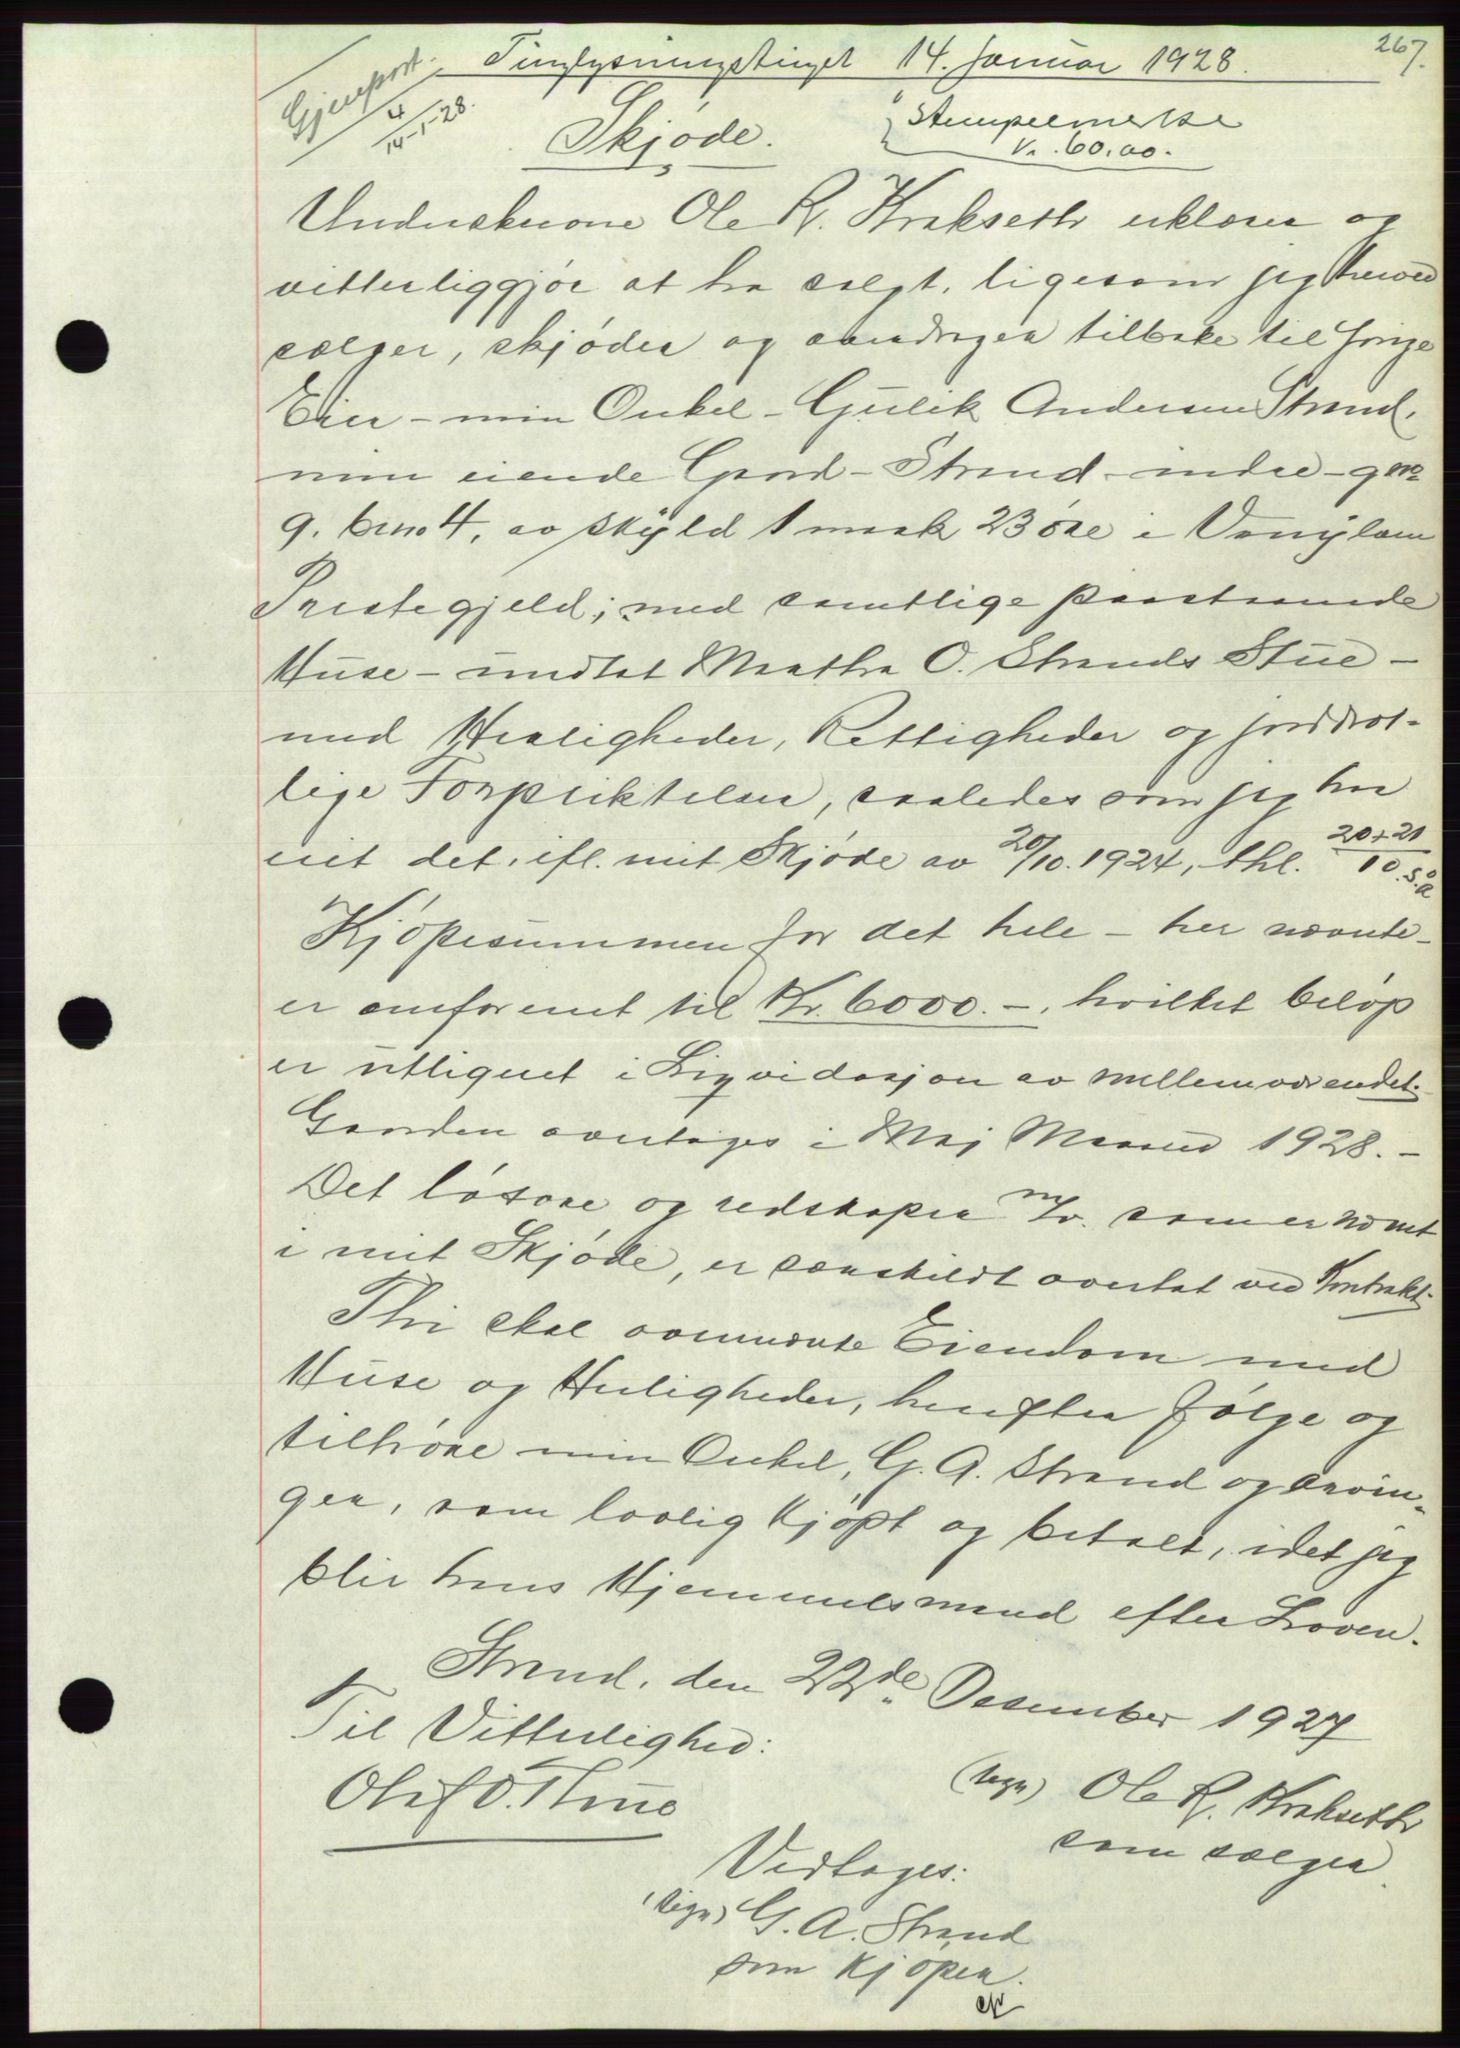 267.
Tinglysningstinget 14. Januar 1928.
Gjenpart.
4
14-1-28.
Stempelmerke
Kr. 60,00.
Skjøde.
Underskrevne Ole R. Krakseth erklærer og
vitterliggjør at ha solgt, ligesom jeg herved
sælger, skjøder og overdrager tilbake til forrige
Eier – min Onkel – Gulik Andersen Strand,
min eiende Gard – Strand – indre – gno
9. bno 4, av skyld 1 mark 23 øre i Vanylven
Prestegjeld; med samtlige paastaaende
Huse – undtat Martha O. Strands Stue –
med Herligheder, Rettigheder og jorddrot-
lige Forpliktelser, saaledes som jeg har
eiet det, ifl. mit Skjøde av 20/10. 1924, thl. 20+21
10. s. a
Kjøpesummen for det hele – her nævnte –
er omforenet til Kr. 6000.–, hvilket beløp
er utlignet i Liqvidasjon av mellemværendet.
Gaarden overtages i Maj Maaned 1928. –
Det løsøre og redskaper m/v. som er nævnt
i mit Skjøde, er særskildt overtat ved Kontrakt.
Thi skal ovennævnte Eiendom med
Huse og Herligheder, herefter følge og
tilhøre min Onkel, G. A. Strand og arvin-
ger, som lovlig kjøpt og betalt, idet jeg
blir hans Hjemmelsmand efter Loven.
Strand, den 22de Desember 1927
Til Vitterlighed:
(sign) Ole R. Krakseth
Olaf O. Thue
som sælger.
Vedtages:
(sign) G. A. Strand
som kjøper.